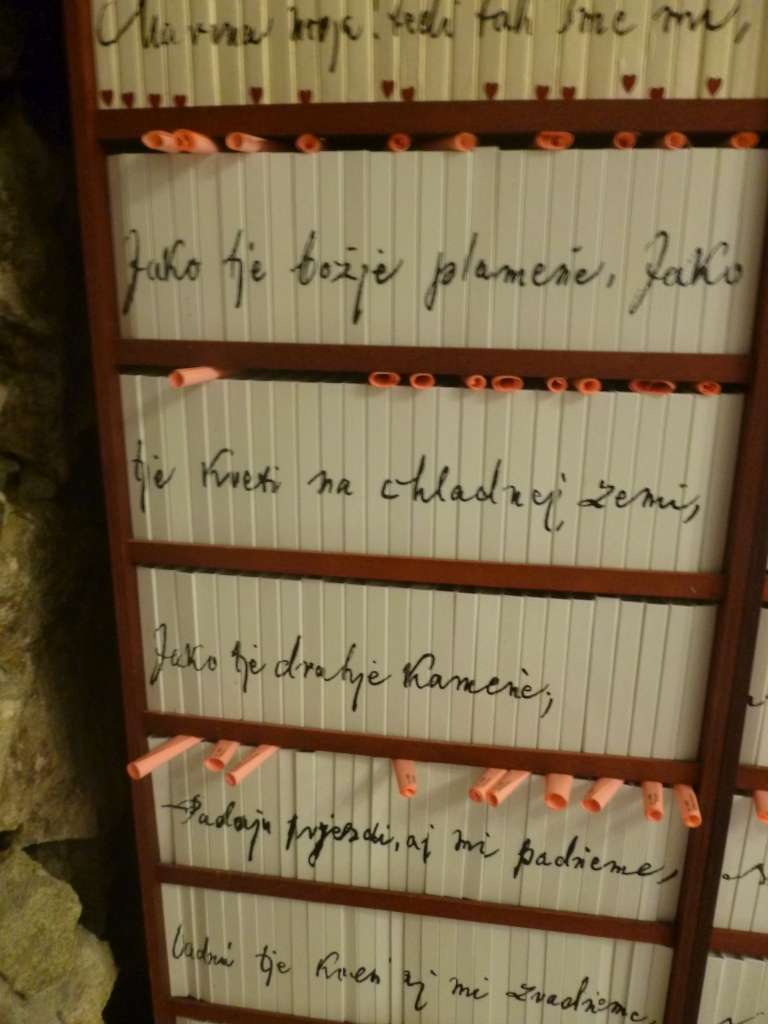 moja! tedi tak sme mi,
Jako tje božje plameňe, Jako
tje kveti na chladnej zemi,
Jako tje drahje kameňe;
Padaju hvjezdi, aj mi padňeme,
tje aj mi zvadňeme,